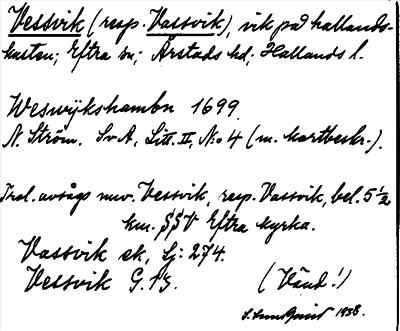 Vessvik (resp. Vassvik), vik på hallands-
kusten; Eftra sn; Årstads hd; Hallands l.
Weswijkshambn 1699.
N. Ström. SvA, Litt. II, No 4 (m. kartbeskr.).
Trol. avsågs nuv. Vessvik, resp. Vassvik, bel. 5 1/2
km. SSV Eftra kyrka.
Vassvik ek, Lj: 274.
Vessvik G. 13.
(Vänd!)
1938.